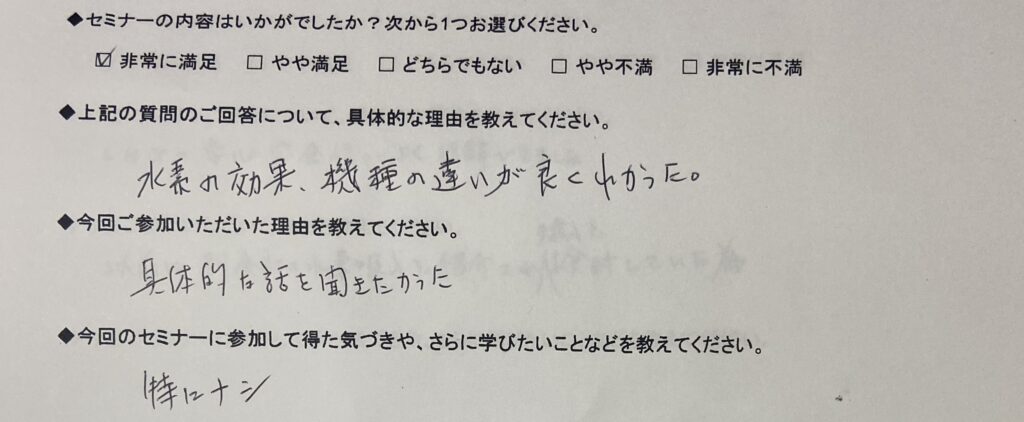 ◆セミナーの内容はいかがでしたか？次から1つお選びください。
☑ 非常に満足 □ やや満足 □ どちらでもない □ やや不満 □ 非常に不満
◆上記の質問のご回答について、具体的な理由を教えてください。
水素の効果、機種の違いが良くわかった。
◆今回ご参加いただいた理由を教えてください。
具体的な話を聞きたかった
◆今回のセミナーに参加して得た気づきや、さらに学びたいことなどを教えてください。
特にナシ